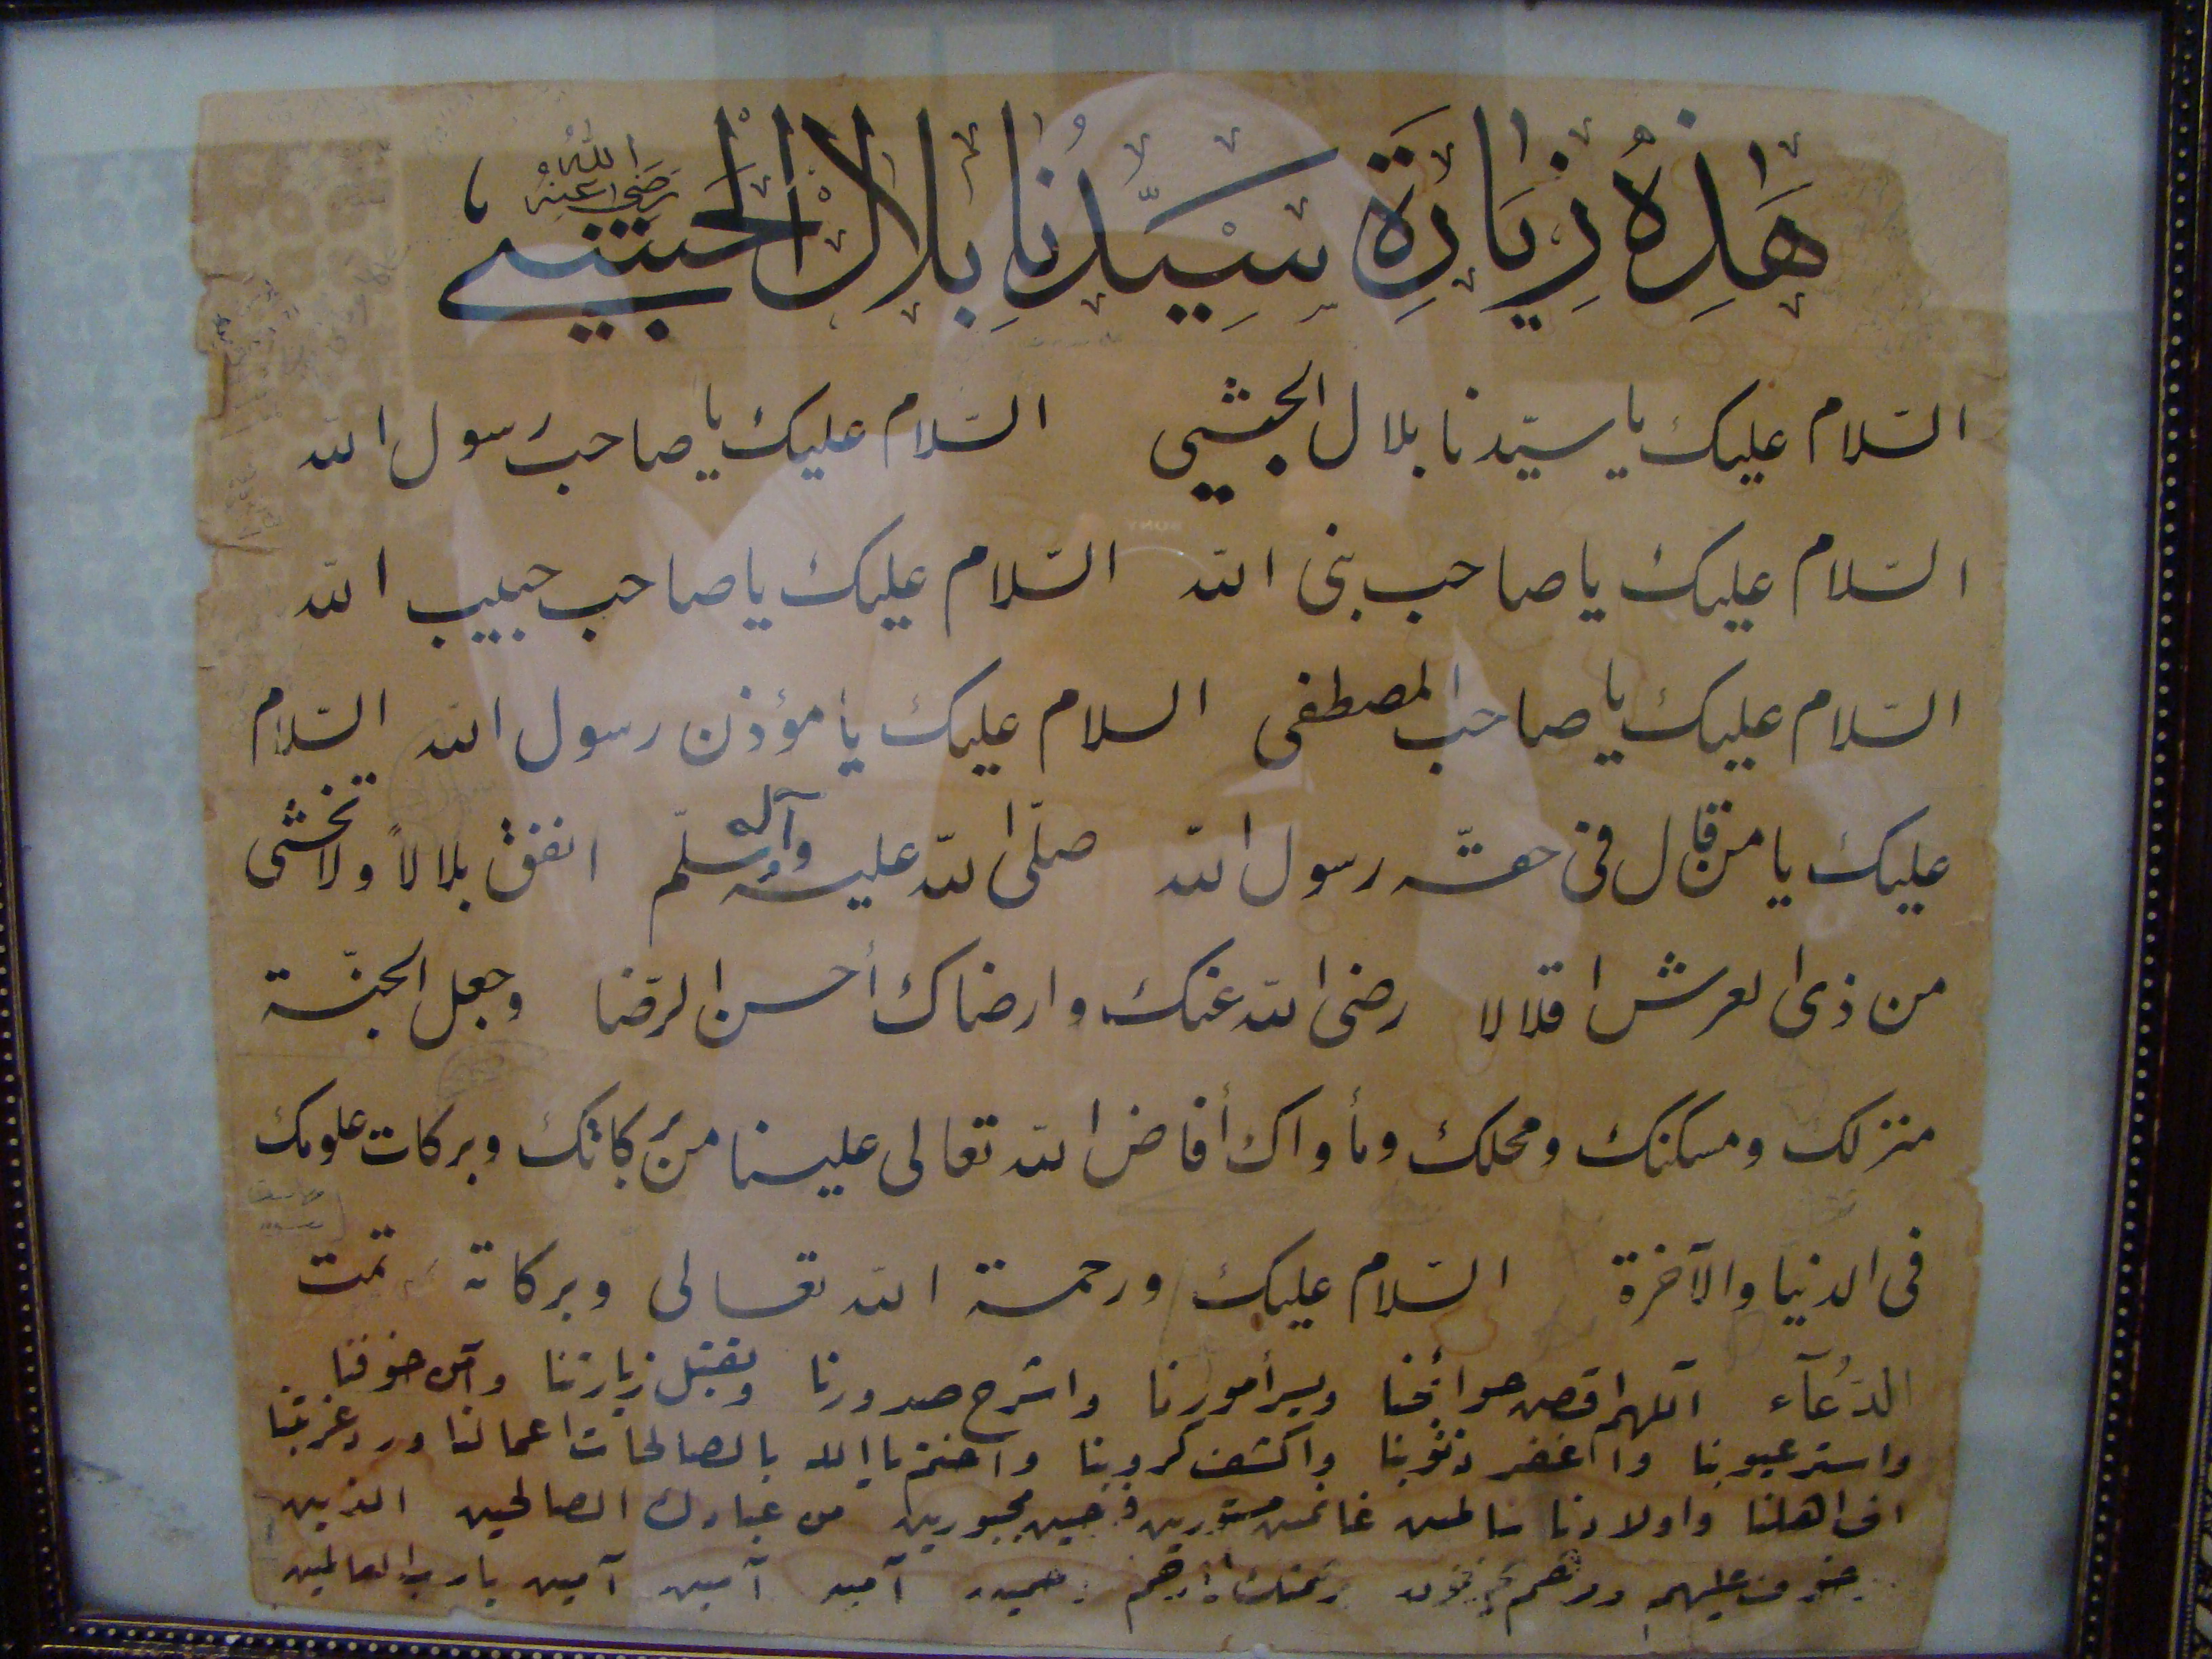 هَذِهُ زِيَارَةِ سِيَّدُنَا بِلَالُ الْحَبَشِي رَضِيَ اللهُ عَنْهُ
السّلام عليك يا سيّدنا بلال الحبشي السّلام عليك يا صاحب رسول الله
السّلام عليك يا صاحب نبى الله السّلام عليك يا صاحب حبيب الله
السّلام عليك يا صاحب المصطفى السلام عليك يا مؤذن رسول الله السّلام
عليك يا من قال فى حقّه رسول الله صلّى الله عليه وآله وسلّم انفق بلالاً ولا تخشى
من ذى العرش اقلالا رضى الله عنك وارضاك أحسن الرّضا وجعل الجنّة
منزلك ومسكنك ومحلك ومأواك أفاض الله تعالى علينا من بركاتك وبركات علومك
فى الدنيا والآخرة السّلام عليك ورحمة الله تعالى وبركاته تمت
الدُعآء آللهم اقض حوائجنا ويسر أمورنا واشرح صدورنا وتقبل زيارتنا وآمن خوفنا
واستر عيوبنا واغفر ذنوبنا واكشف كروبنا واختم يا إلله بالصالحات اعمالنا ورد غربتنا
الى اهلنا واولادنا سالمين غانمين مستورين فرحين مجبورين من عبادك الصالحين الذين
خوف عليهم ولا هم يحزنون برحمتك يا ارحم آمين آمين آمين يا رب العالمين